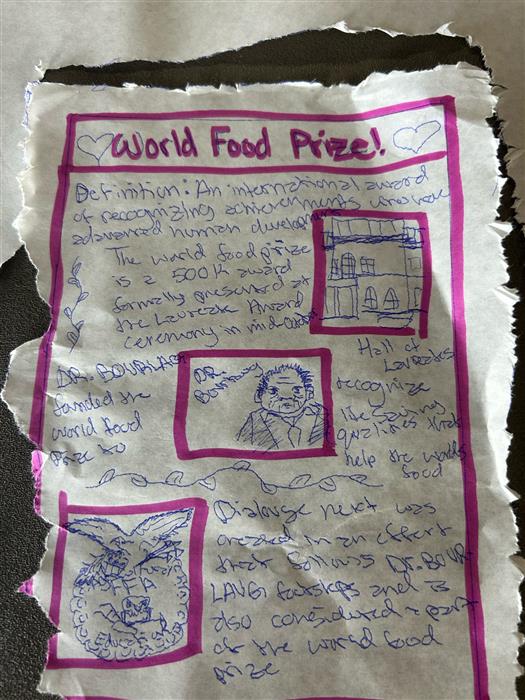 World Food Prize!
Definition: An international award
of recognizing achievements who have
advanced human development
The world food prize
is a 500K award
formally presented at
the Laureate Award
ceremony in mid
Hall of
Laureates
DR.
DR. BOURLAG
founded the
world food
prize to
recognize
the
qualities that
help the worlds
food
Dialouge next was
created in an effort
that follows DR. BOUR
LAUG footsteps and is
also considured a part
of the world food
prize
FFA
Education